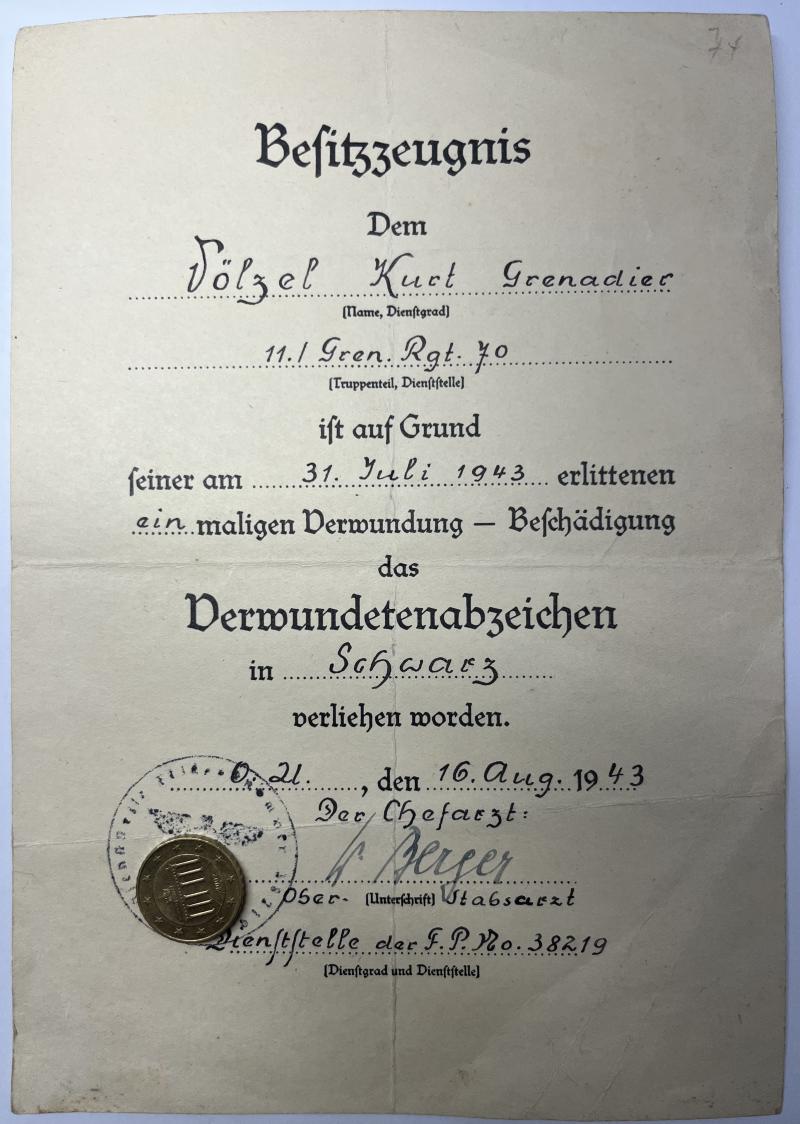 74
Besitzzeugnis
Dem
Völzel Kurt Grenadier
(Name, Dienstgrad)
11./ Gren. Rgt. 70
(Truppenteil, Dienststelle)
ist auf Grund
seiner am 31. Juli 1943 erlittenen
ein maligen Verwundung – Beschädigung
das
Verwundetenabzeichen
in Schwarz
verliehen worden.
O. U. , den 16. Aug. 1943
Der Chefarzt:
Berger
Ober- (Unterschrift) Stabsarzt
Dienststelle der F. P. No. 38219
(Dienstgrad und Dienststelle)
Dienststelle Feldpostnummer